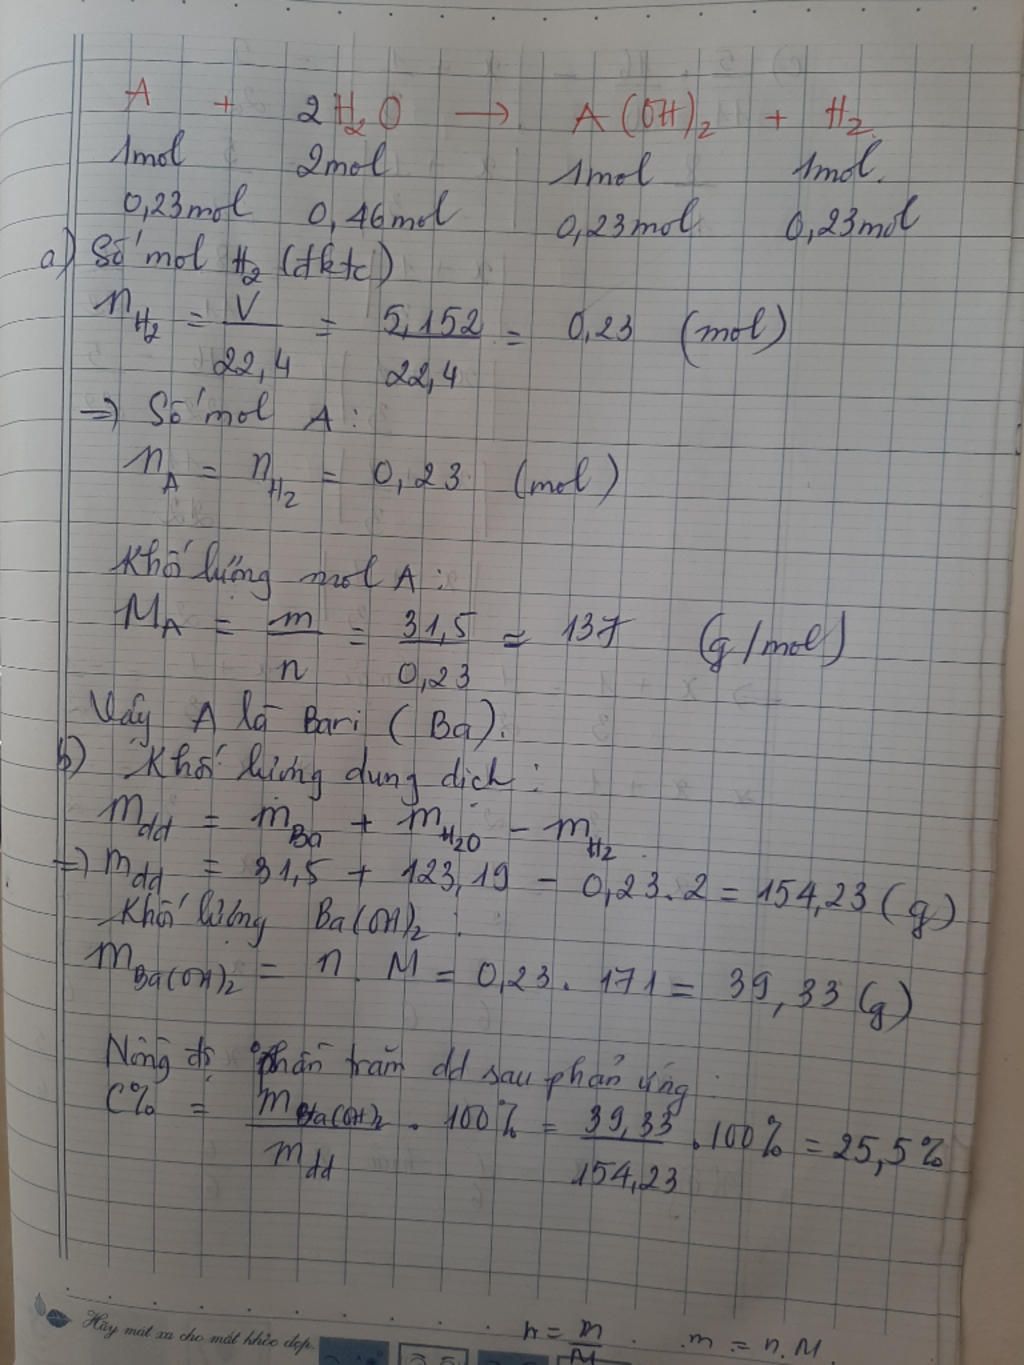 A + 2H₂O → A(OH)₂ + H₂
1mol 2mol 1mol 1mol.
0,23mol 0,46mol 0,23mol 0,23mol
a) Số mol H₂ (đktc)
n_H₂ = V/22,4 = 5,152/22,4 = 0,23 (mol)
=> Số mol A:
n_A = n_H₂ = 0,23 (mol)
Khối lượng mol A:
M_A = m/n = 31,5/0,23 = 137 (g/mol)
Vậy A là Bari (Ba).
b) Khối lượng dung dịch:
m_dd = m_Ba + m_H₂O - m_H₂
=> m_dd = 31,5 + 123,19 - 0,23.2 = 154,23 (g)
Khối lượng Ba(OH)₂:
m_Ba(OH)₂ = n. M = 0,23. 171 = 39,33 (g)
Nồng độ phần trăm dd sau phản ứng:
C% = m_Ba(OH)₂/m_dd . 100% = 39,33/154,23 .100% = 25,5%
Hãy mát xa cho mắt khỏe đẹp.
n = m/M . m = n.M